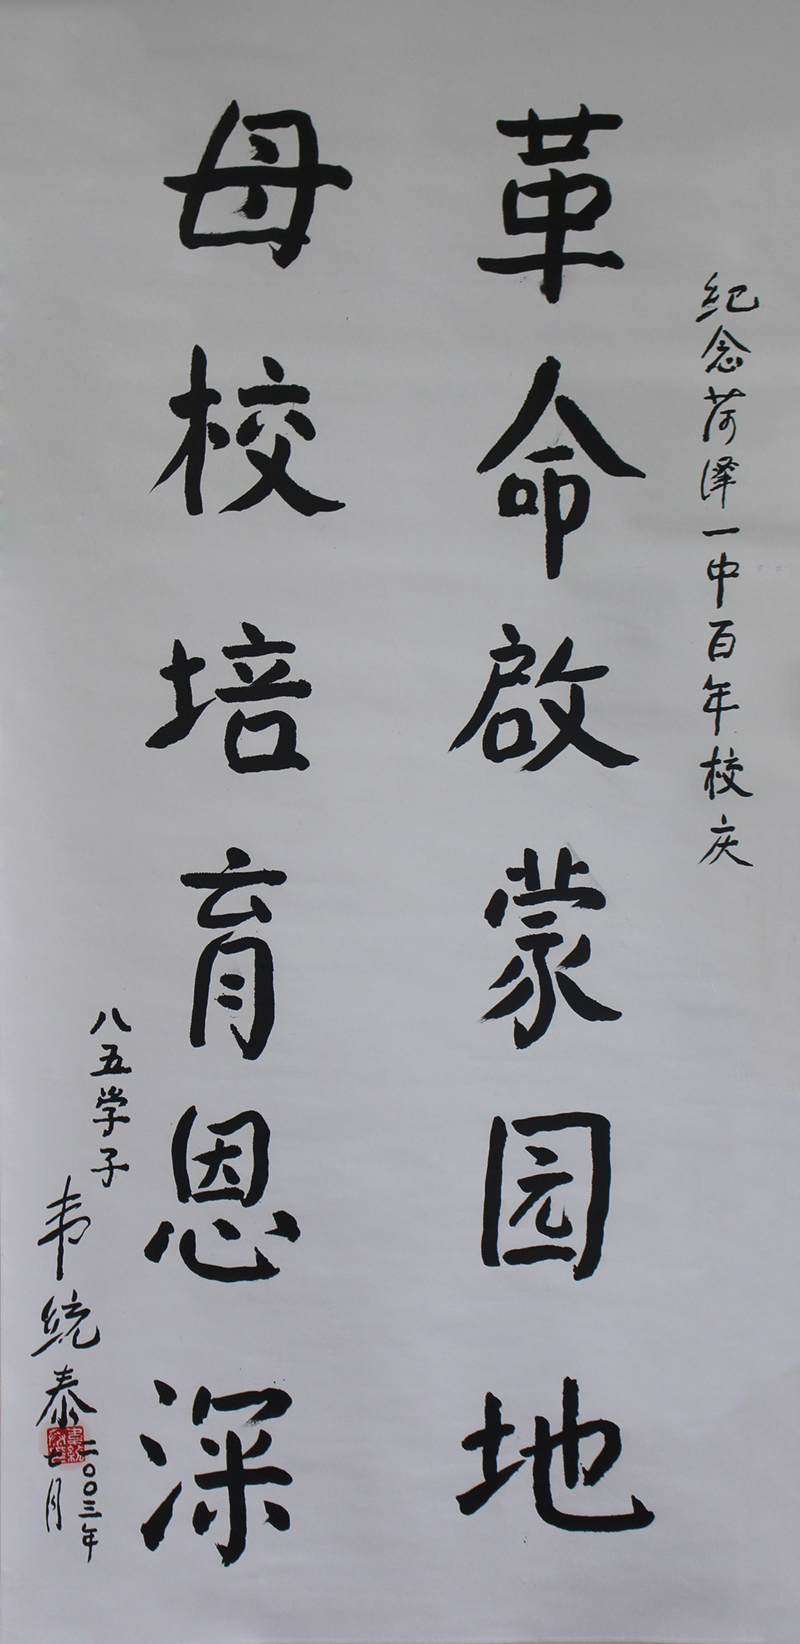 纪念菏泽一中百年校庆
革命啟蒙园地
母校培育恩深
八五学子
韦统泰
二〇〇三年
七月